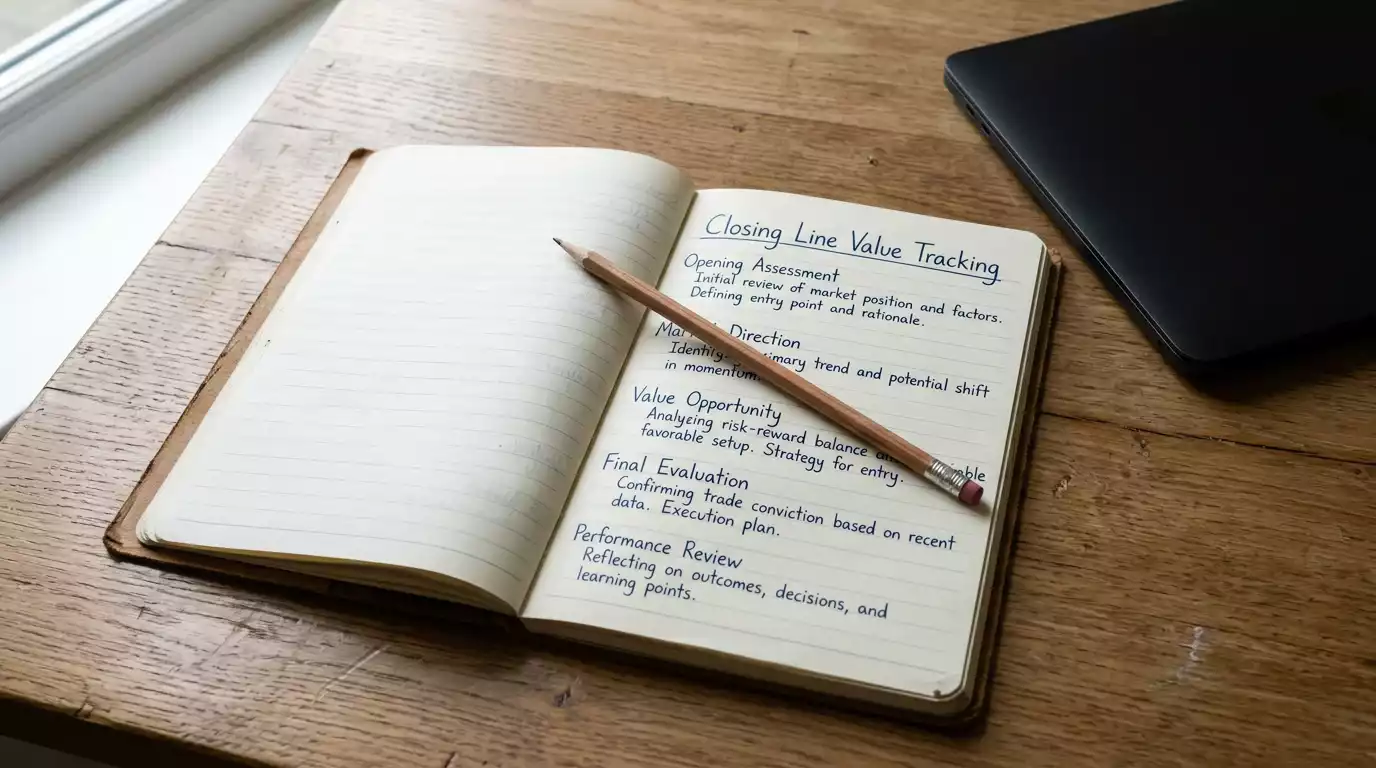 Closing Line Value Tracking
Opening Assessment
Initial review of market position and factors.
Defining entry point and rationale.
Direction
trend and potential shift
in momentum
Value Opportunity
Analyzing risk-reward balance
favorable setup. Strategy for entry.
Final Evaluation
Confirming trade conviction based on recent
data. Execution plan.
Performance Review
Reflecting on outcomes, decisions, and
learning points.